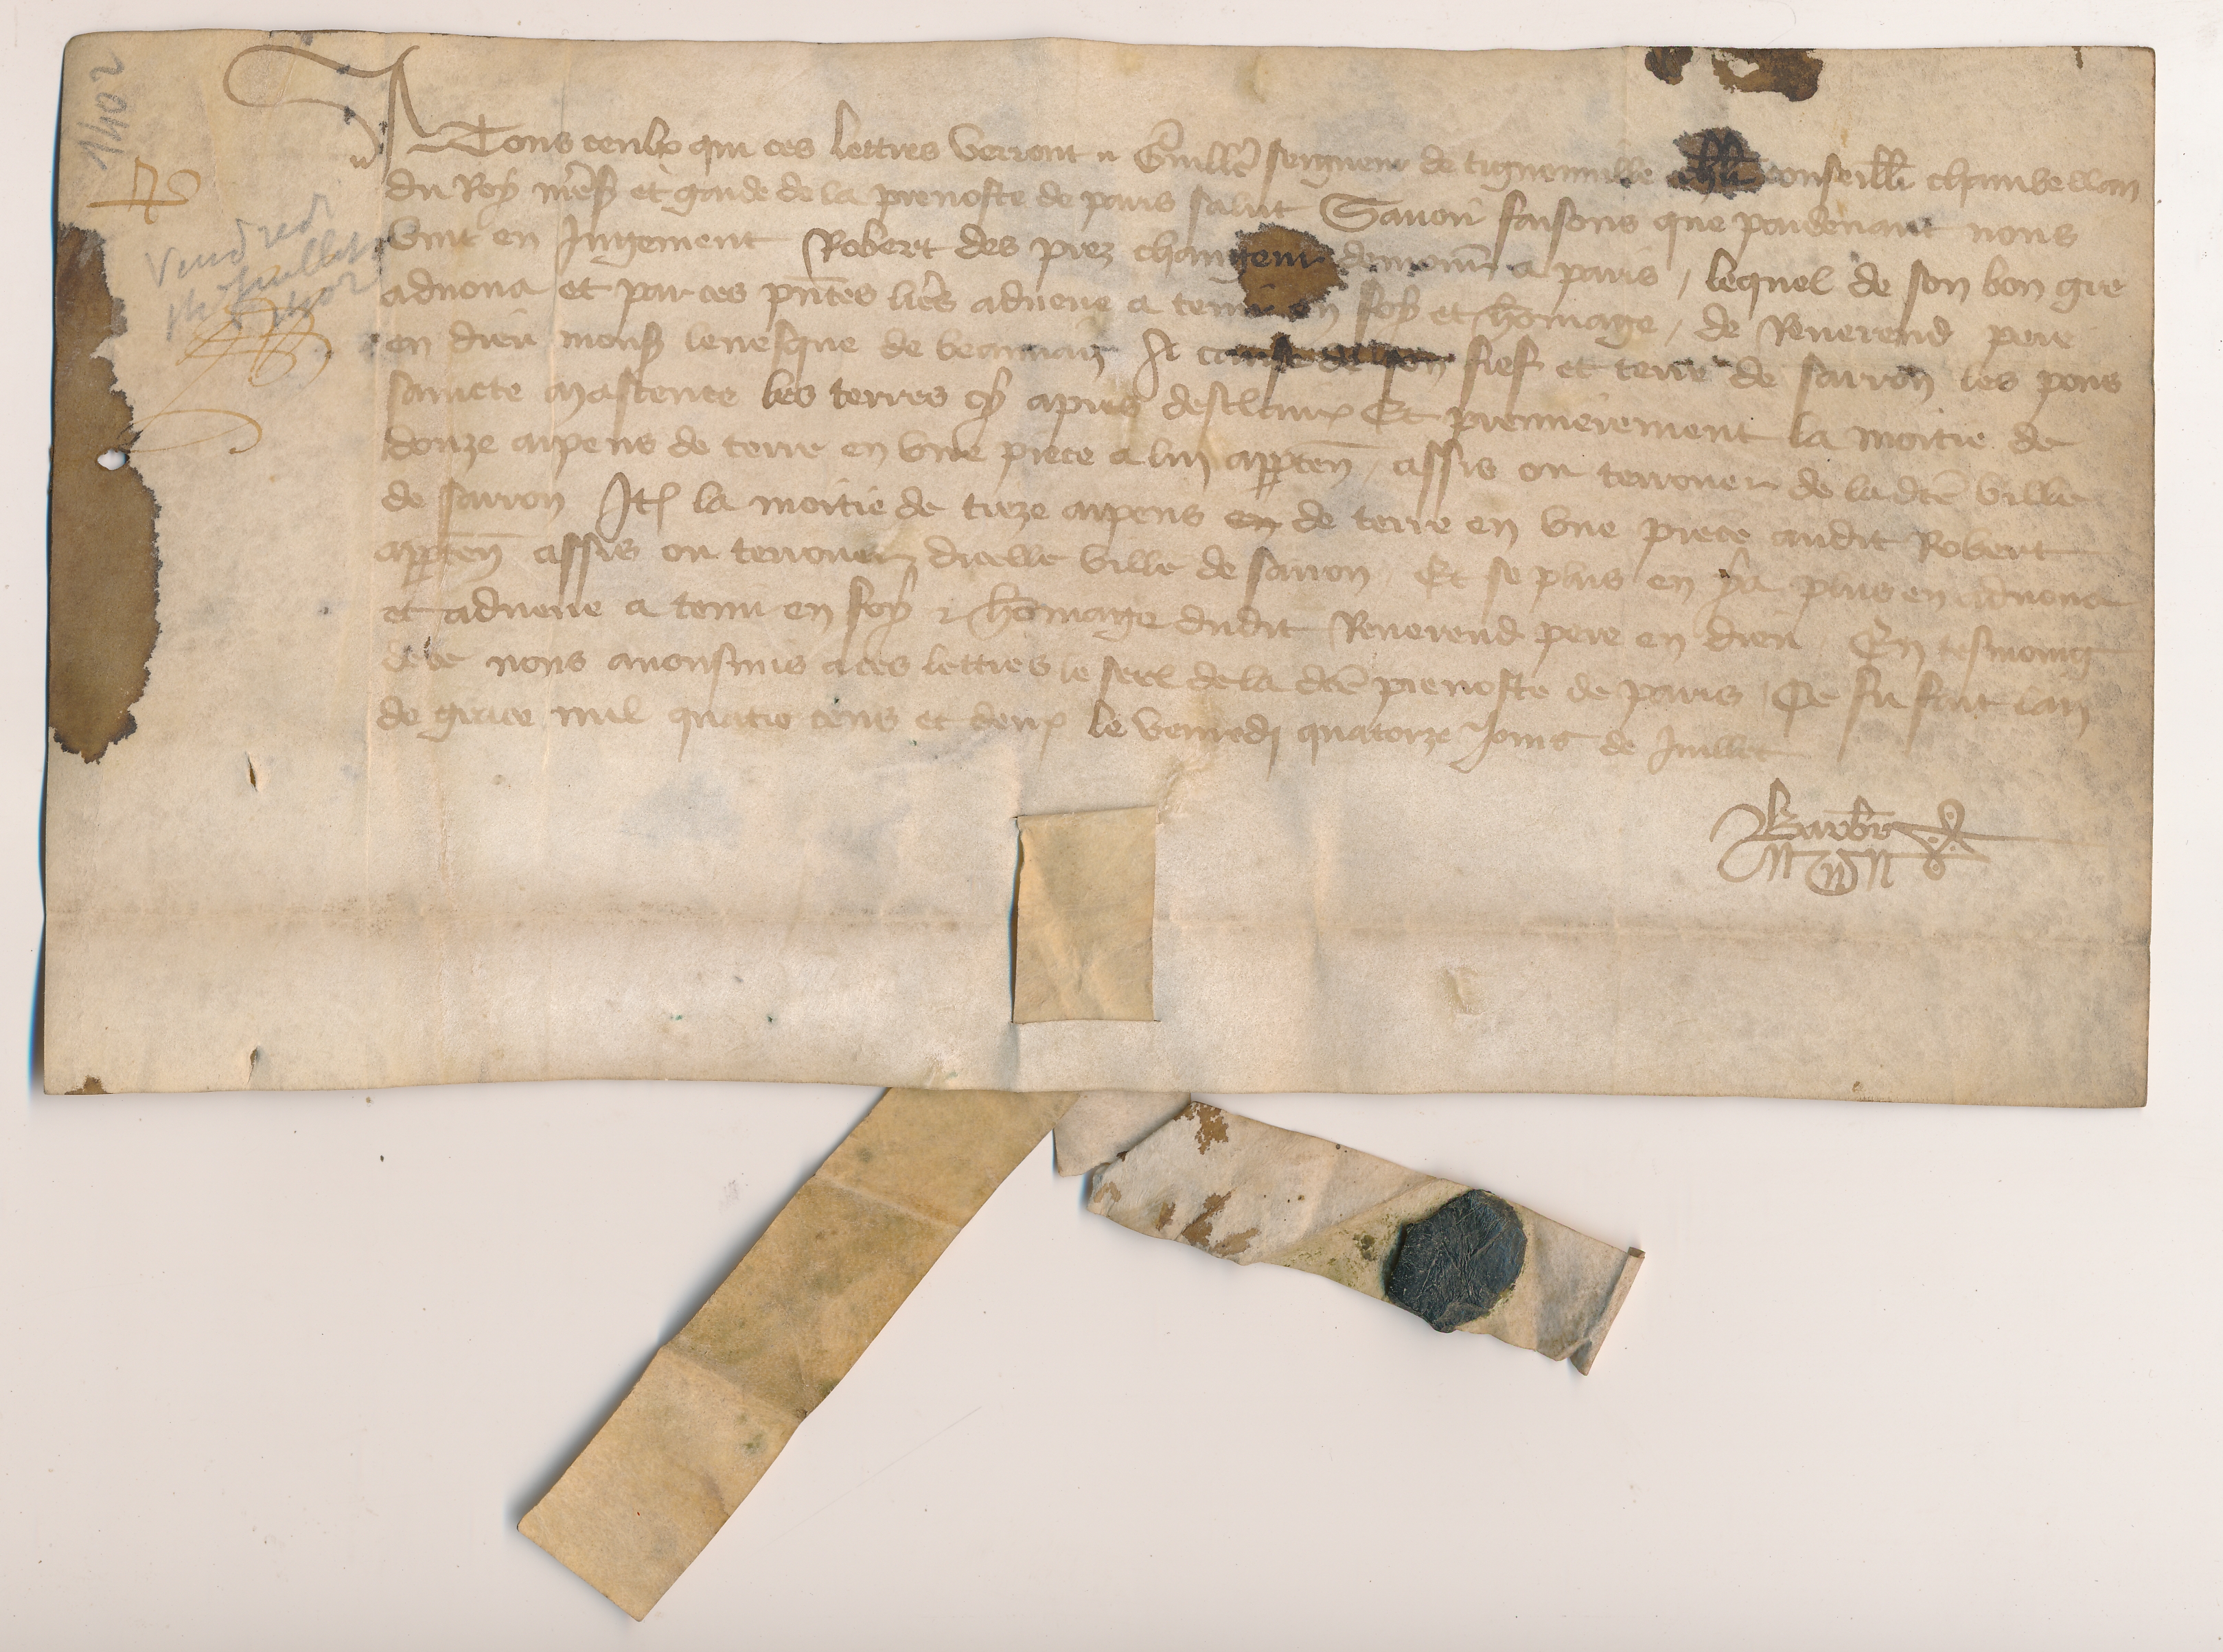 1402
Vendred
14 juillet
1402
A Tous ceulx qui ces lettres verront Guille seigneur de tignonville chlr conseillr chambellan
du Roy nres et garde de la prevoste de paris salut Savoir faisons que pardevant nous
vint en Jugement Robert des prez changeur demour a paris / lequel de son bon gre
advoua et par ces pntes lres advoue a tenir en foy et homage / de Reverend pere
en dieu mons levesque de beauvaiz A cause de son fief et terre de sarron les pons
saincte maxence les terres cy apres desclairx Et premierement la moitie de
douze arpens de terre en une piece a lui apparten / assis ou terrouer de la dce ville
de sarron Itē la moitie de treze arpens en de terre en une piece audit Robert
apparten assis ou terrouer dicelle ville de sarron Et se plus en y a plus en advoua
et advoue a tenir en foy & homage dudit Reverend pere en dieu En tesmoing
de ce nous avons mis a ces lettres le seel de la dce prevoste de paris Ce fu fait lan
de grace mil quatre cens et deux le venredi quatorze jours de Juillet